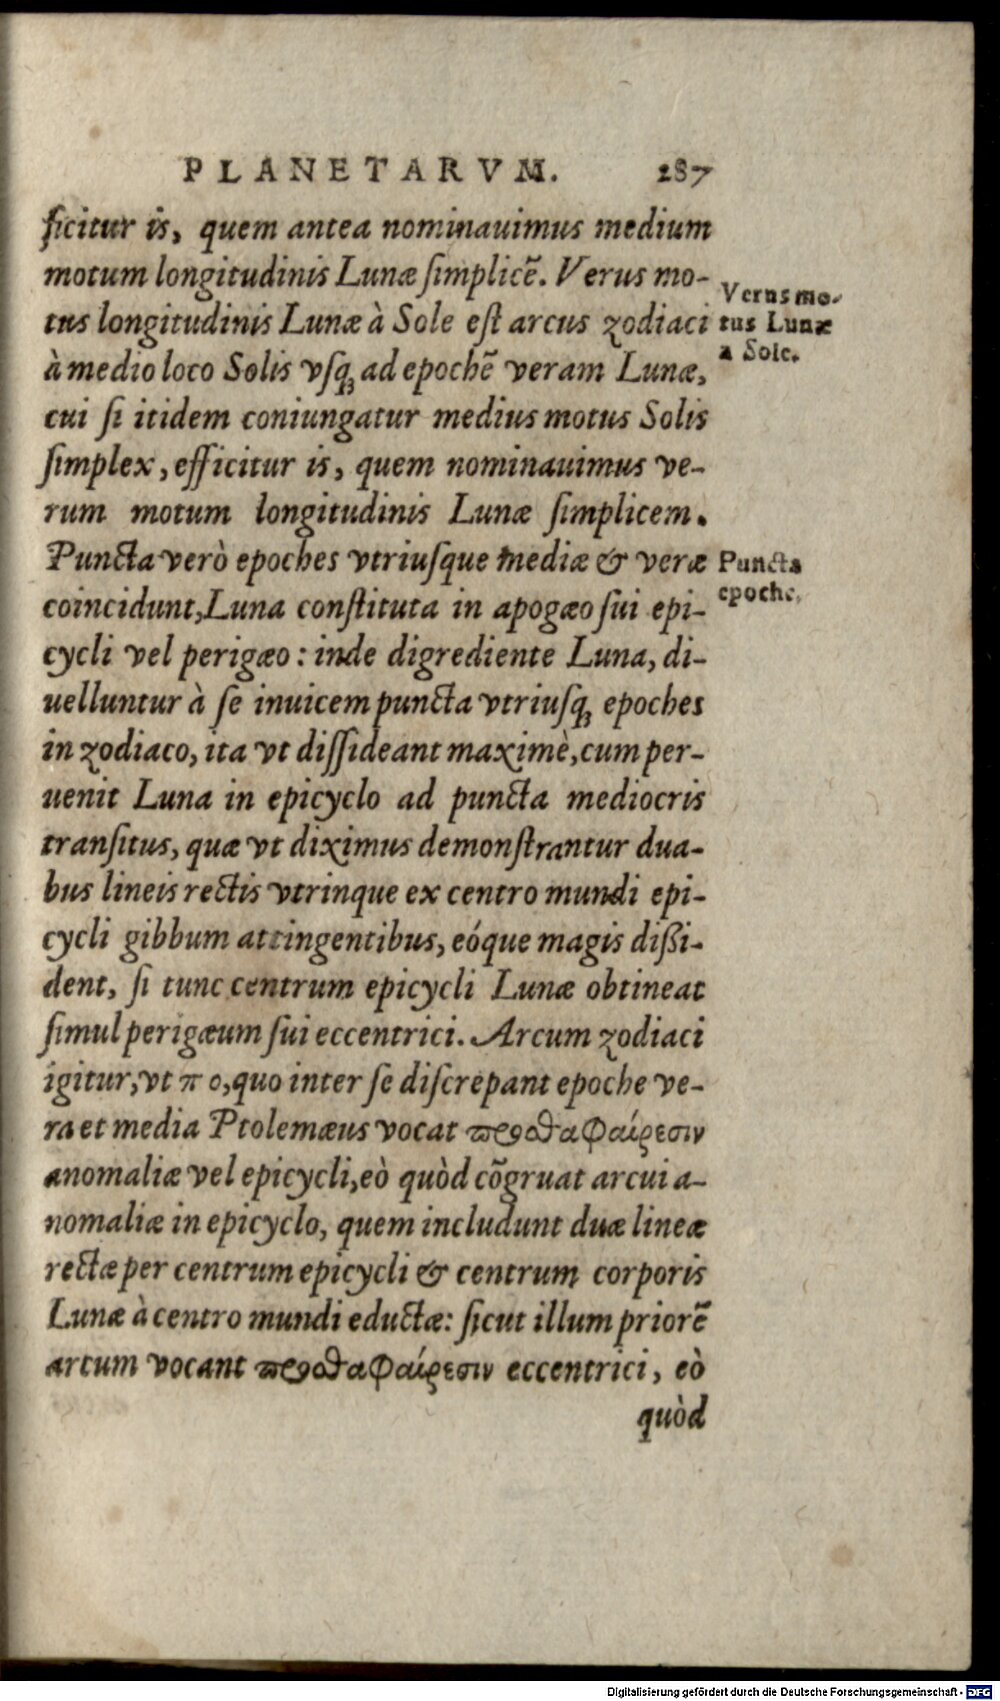 PLANETARVM. 287
ficitur is, quem antea nominauimus medium
motum longitudinis Lunæ ſimplicẽ. Verus mo-
tus longitudinis Lunæ à Sole eſt arcus zodiaci
à medio loco Solis vſq; ad epochẽ veram Lunæ,
cui ſi itidem coniungatur medius motus Solis
ſimplex, efficitur is, quem nominauimus ve-
rum motum longitudinis Lunæ ſimplicem.
Puncta verò epoches vtriuſque mediæ & veræ
coincidunt, Luna conſtituta in apogæo ſui epi-
cycli vel perigæo: inde digrediente Luna, di-
uelluntur à ſe inuicem puncta vtriuſq; epoches
in zodiaco, ita vt diſſideant maximè, cum per-
uenit Luna in epicyclo ad puncta mediocris
tranſitus, quæ vt diximus demonſtrantur dua-
bus lineis rectis vtrinque ex centro mundi epi-
cycli gibbum attingentibus, eóque magis dißi-
dent, ſi tunc centrum epicycli Lunæ obtineat
ſimul perigæum ſui eccentrici. Arcum zodiaci
igitur, vt π o, quo inter ſe diſcrepant epoche ve-
ra et media Ptolemæus vocat προσθαφαίρεσιν
anomaliæ vel epicycli, eò quòd cõgruat arcui a-
nomaliæ in epicyclo, quem includunt duæ lineæ
rectæ per centrum epicycli & centrum corporis
Lunæ à centro mundi eductæ: ſicut illum priorẽ
arcum vocant προσθαφαίρεσιν eccentrici, eò
quòd
Verus mo-
tus Lunæ
a Sole.
Puncta
epoche.
Digitalisierung gefördert durch die Deutsche Forschungsgemeinschaft - DFG